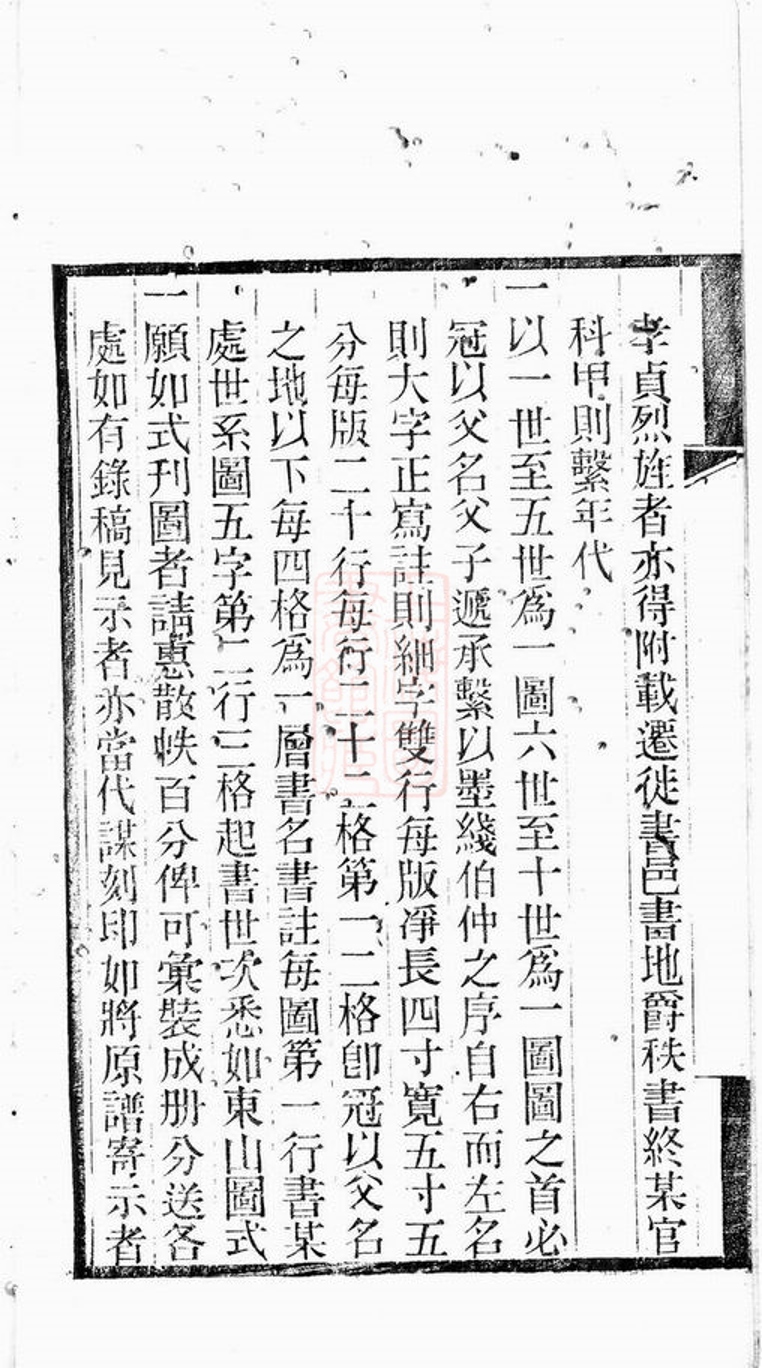 孝貞烈旌者亦得附載遷徙書邑書地爵秩書終某官
科甲則繫年代
一以一世至五世爲一圖六世至十世爲一圖圖之首必
冠以父名父子遞承繫以墨綫伯仲之序自右而左名
則大字正寫註則細字雙行每版凈長四寸寬五寸五
分每版二十行每行二十二格第一二格卽冠以父名
之地以下每四格爲一層書名書註每圖第一行書某
處世系圖五字第二行三格起書世次悉如東山圖式
一願如式刊圖者請惠散帙百分俾可彙裝成册分送各
處如有錄稿見示者亦當代謀刻印如將原譜寄示者